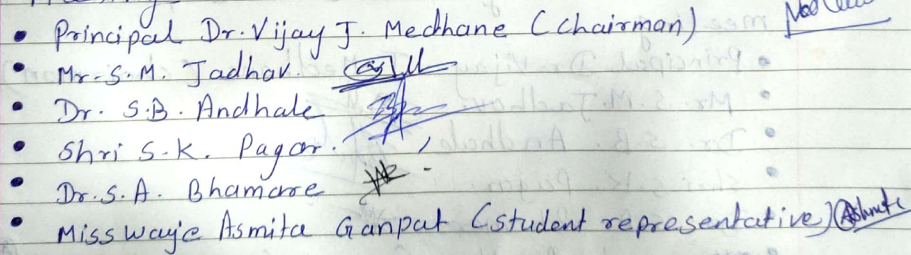 • Principal Dr. Vijay J. Medhane (Chairman)
• Mr. S. M. Jadhav.
• Dr. S.B. Andhale
• Shri S.K. Pagar.
• Dr. S. A. Bhamare
• Miss Waje Asmita Ganpat (student representative)